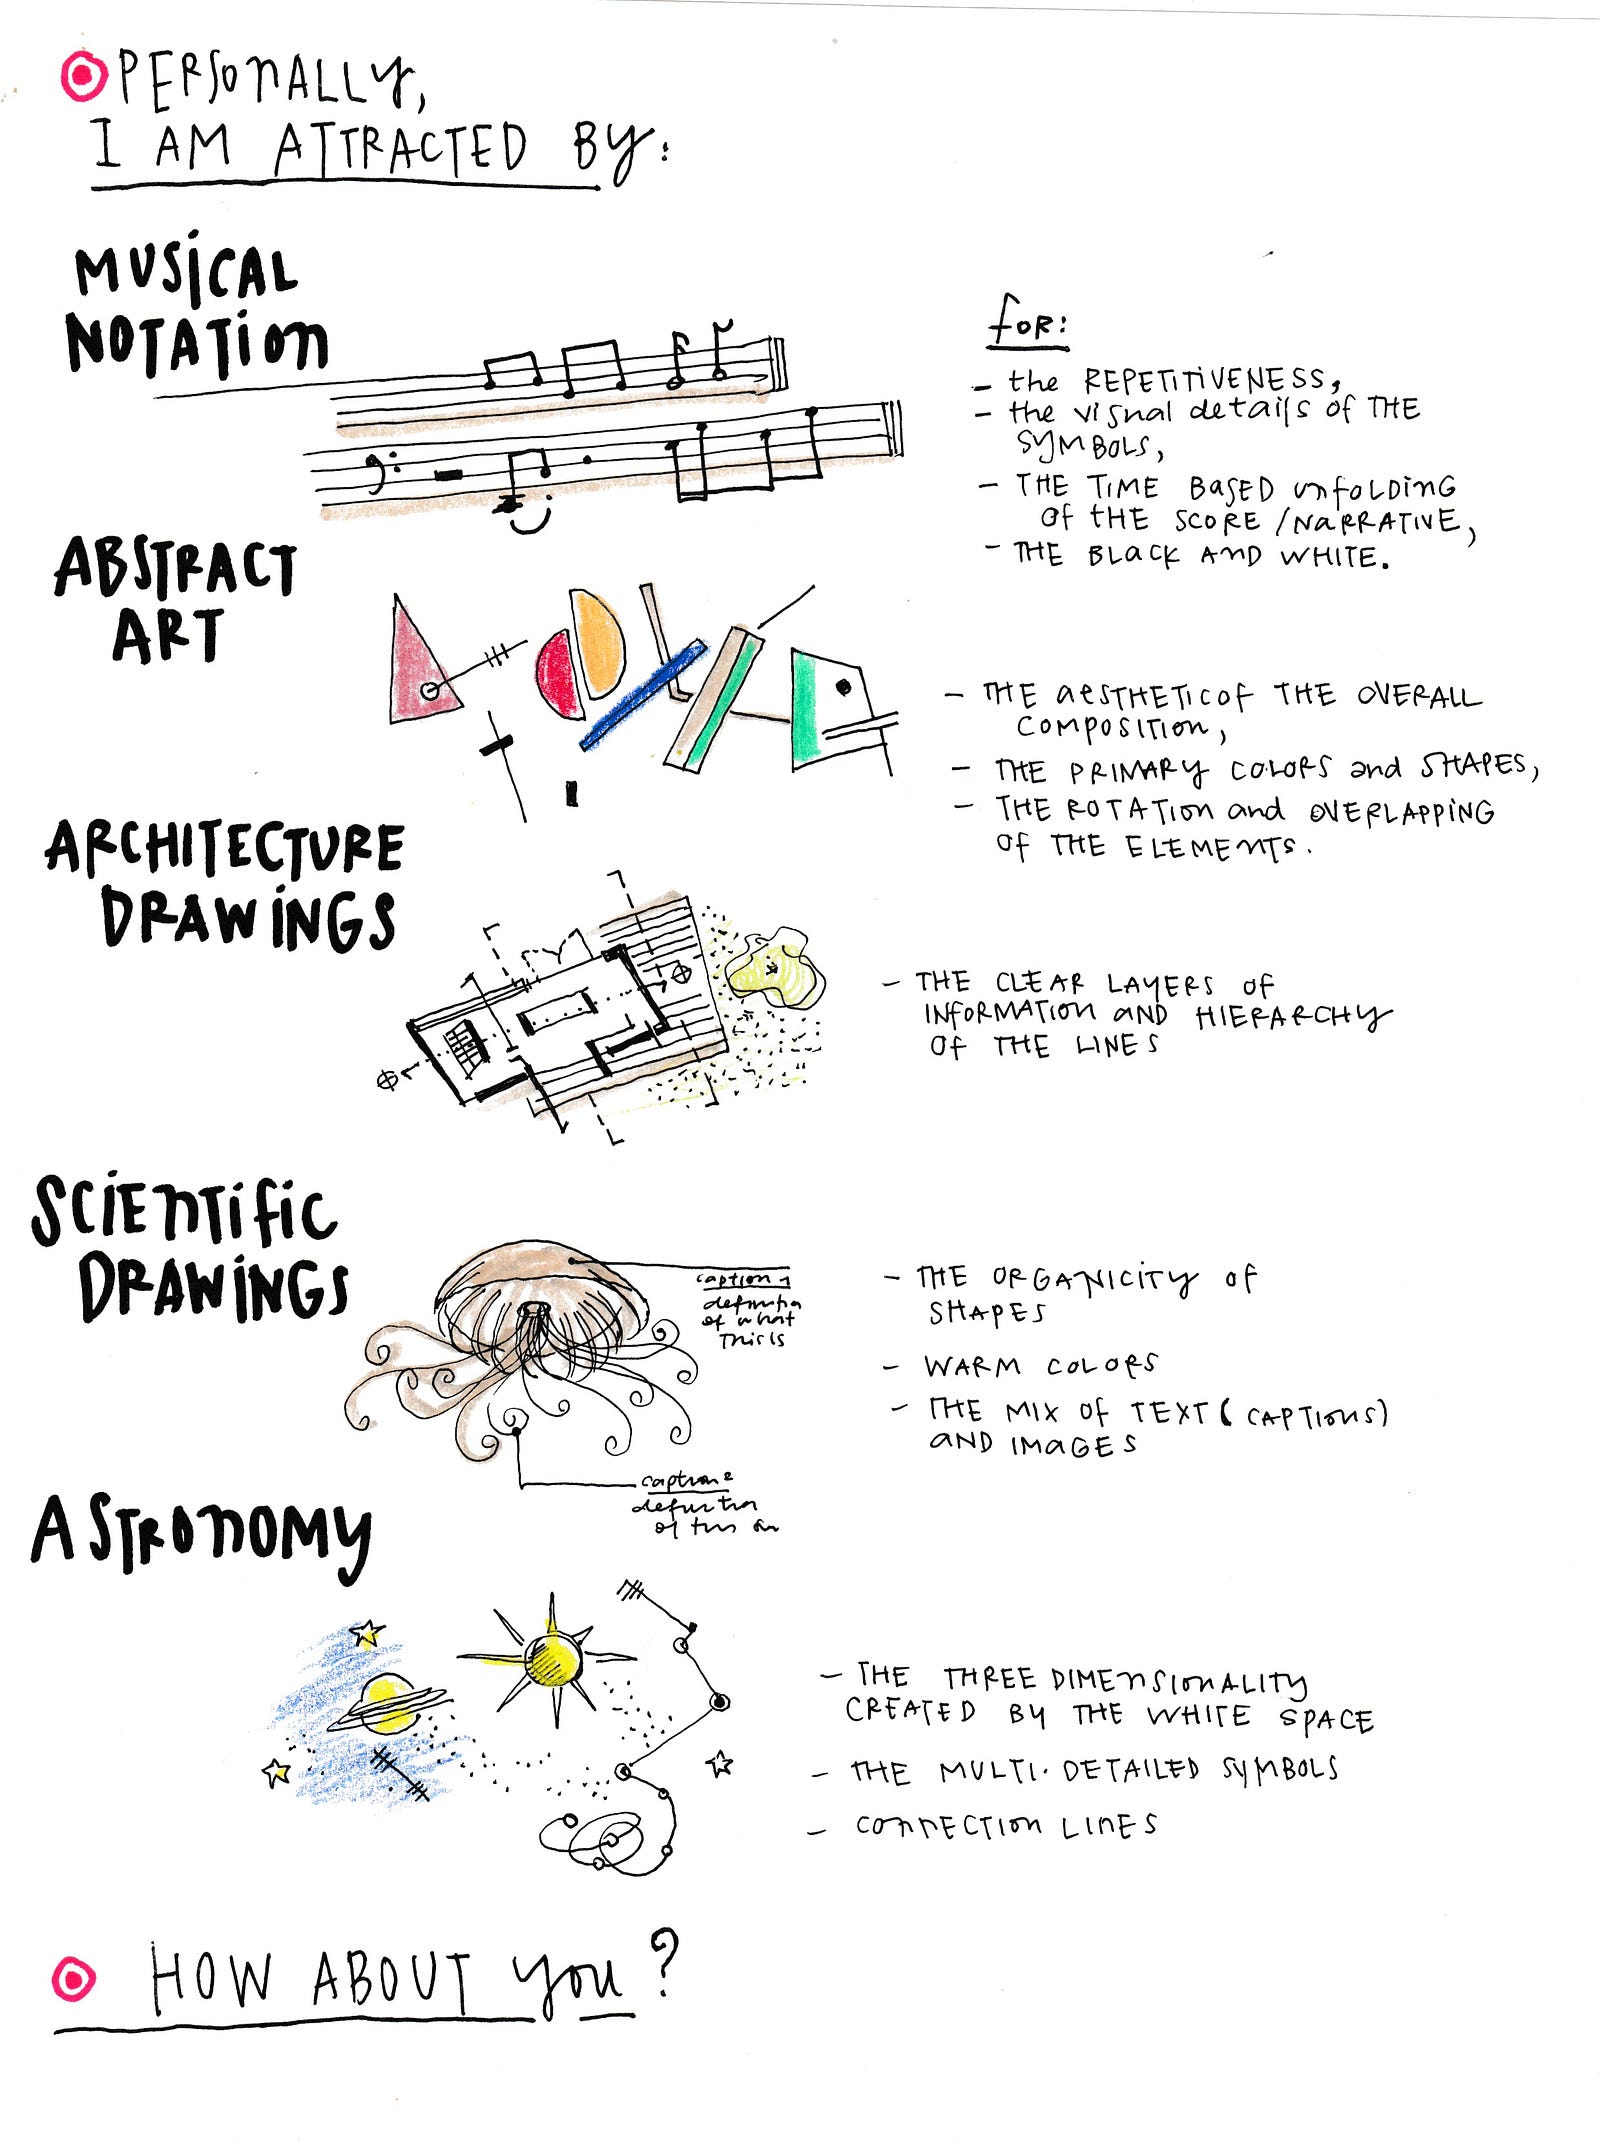 PERSONALLY,
I AM ATTRACTED BY:
MUSICAL
NOTATION
for:
- the REPETITIVENESS,
- the visual details of THE
SYMBOLS,
- THE TIME BASED unfOLDING
Of tHE SCORE / NARRATIVE,
- THE BLACK AND WHITE.
ABSTRACT
ART
- THE aESTHETIC of THE OVERALL
COMPOSITION,
- THE PRIMARY COLORS and SHAPES,
- THE ROTATION and OVERLAPPING
Of THE ELEMENTS.
ARCHITECTURE
DRAWINGS
- THE CLEAR LAYERS OF
INFORMATION AND HIERARCHY
Of THE LINES
SCIENTIFIC
DRAWINGS
caption 1
definition
of what
This is
- THE ORGANICITY OF
SHAPES
- WARM COLORS
- THE MIX Of TEXT (CAPTIONS)
AND IMAGES
caption 2
definition
of this
ASTRONOMY
- THE THREE DIMENSIONALITY
CREATED BY THE WHITE SPACE
- THE MULTI-DETAILED SYMBOLS
- CONNECTION LINES
HOW ABOUT you?